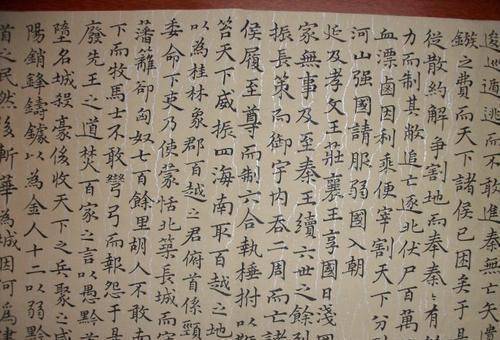 逡巡遁逃而不敢進秦無亡矢遺
鏃之費而天下諸侯已困矣于是
從散約解爭割地而奉秦〻有餘
力而制其敝追亡逐北伏尸百萬
血漂鹵因利乘便宰割天下分裂
河山強國請服弱國入朝
延及孝文王莊襄王享國日淺國
家無事及至秦王續六世之餘
振長策而御宇內吞二周而亡諸
侯履至尊而制六合執棰拊以鞭
笞天下威振四海南取百越之地
以為桂林象郡百越之君俯首係頸
委命下吏乃使蒙恬北築長城而守
藩籬卻匈奴七百餘里胡人不敢南
下而牧馬士不敢彎弓而報怨于是
廢先王之道焚百家之言以愚黔首
墮名城殺豪俊收天下之兵聚之咸
陽銷鋒鑄鐻以為金人十二以弱黔
首之民然後斬華為城因河為津